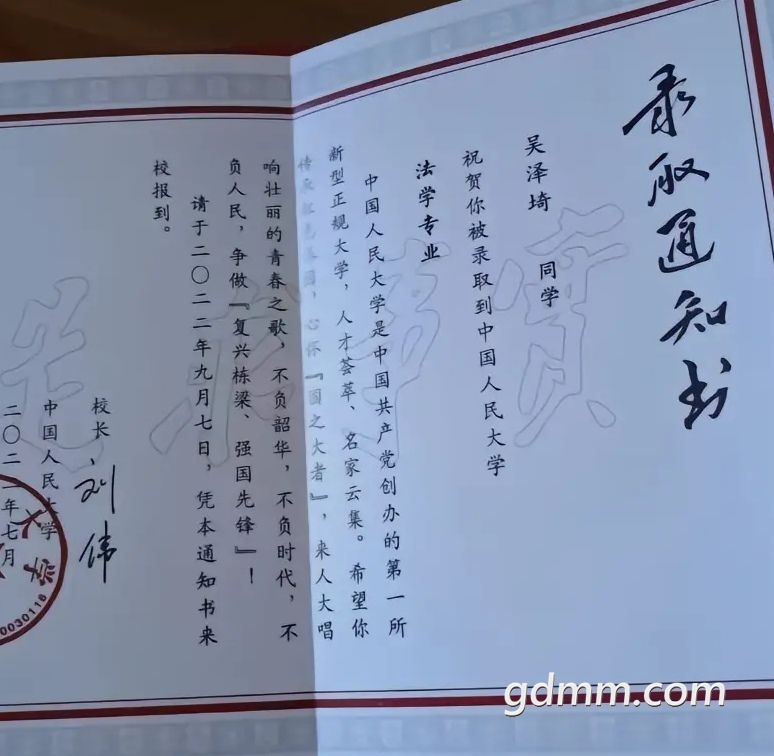 录取通知书
吴泽埼 同学
祝贺你被录取到中国人民大学
法学专业
中国人民大学是中国共产党创办的第一所
新型正规大学，人才荟萃、名家云集。希望你
传承红色基因，心怀『国之大者』，来人大唱
响壮丽的青春之歌，不负韶华，不负时代，不
负人民，争做『复兴栋梁、强国先锋』！
请于二〇二二年九月七日，凭本通知书来
校报到。
校长 刘伟
中国人民大学
二〇二二年七月
大学
0030116
gdmm.com